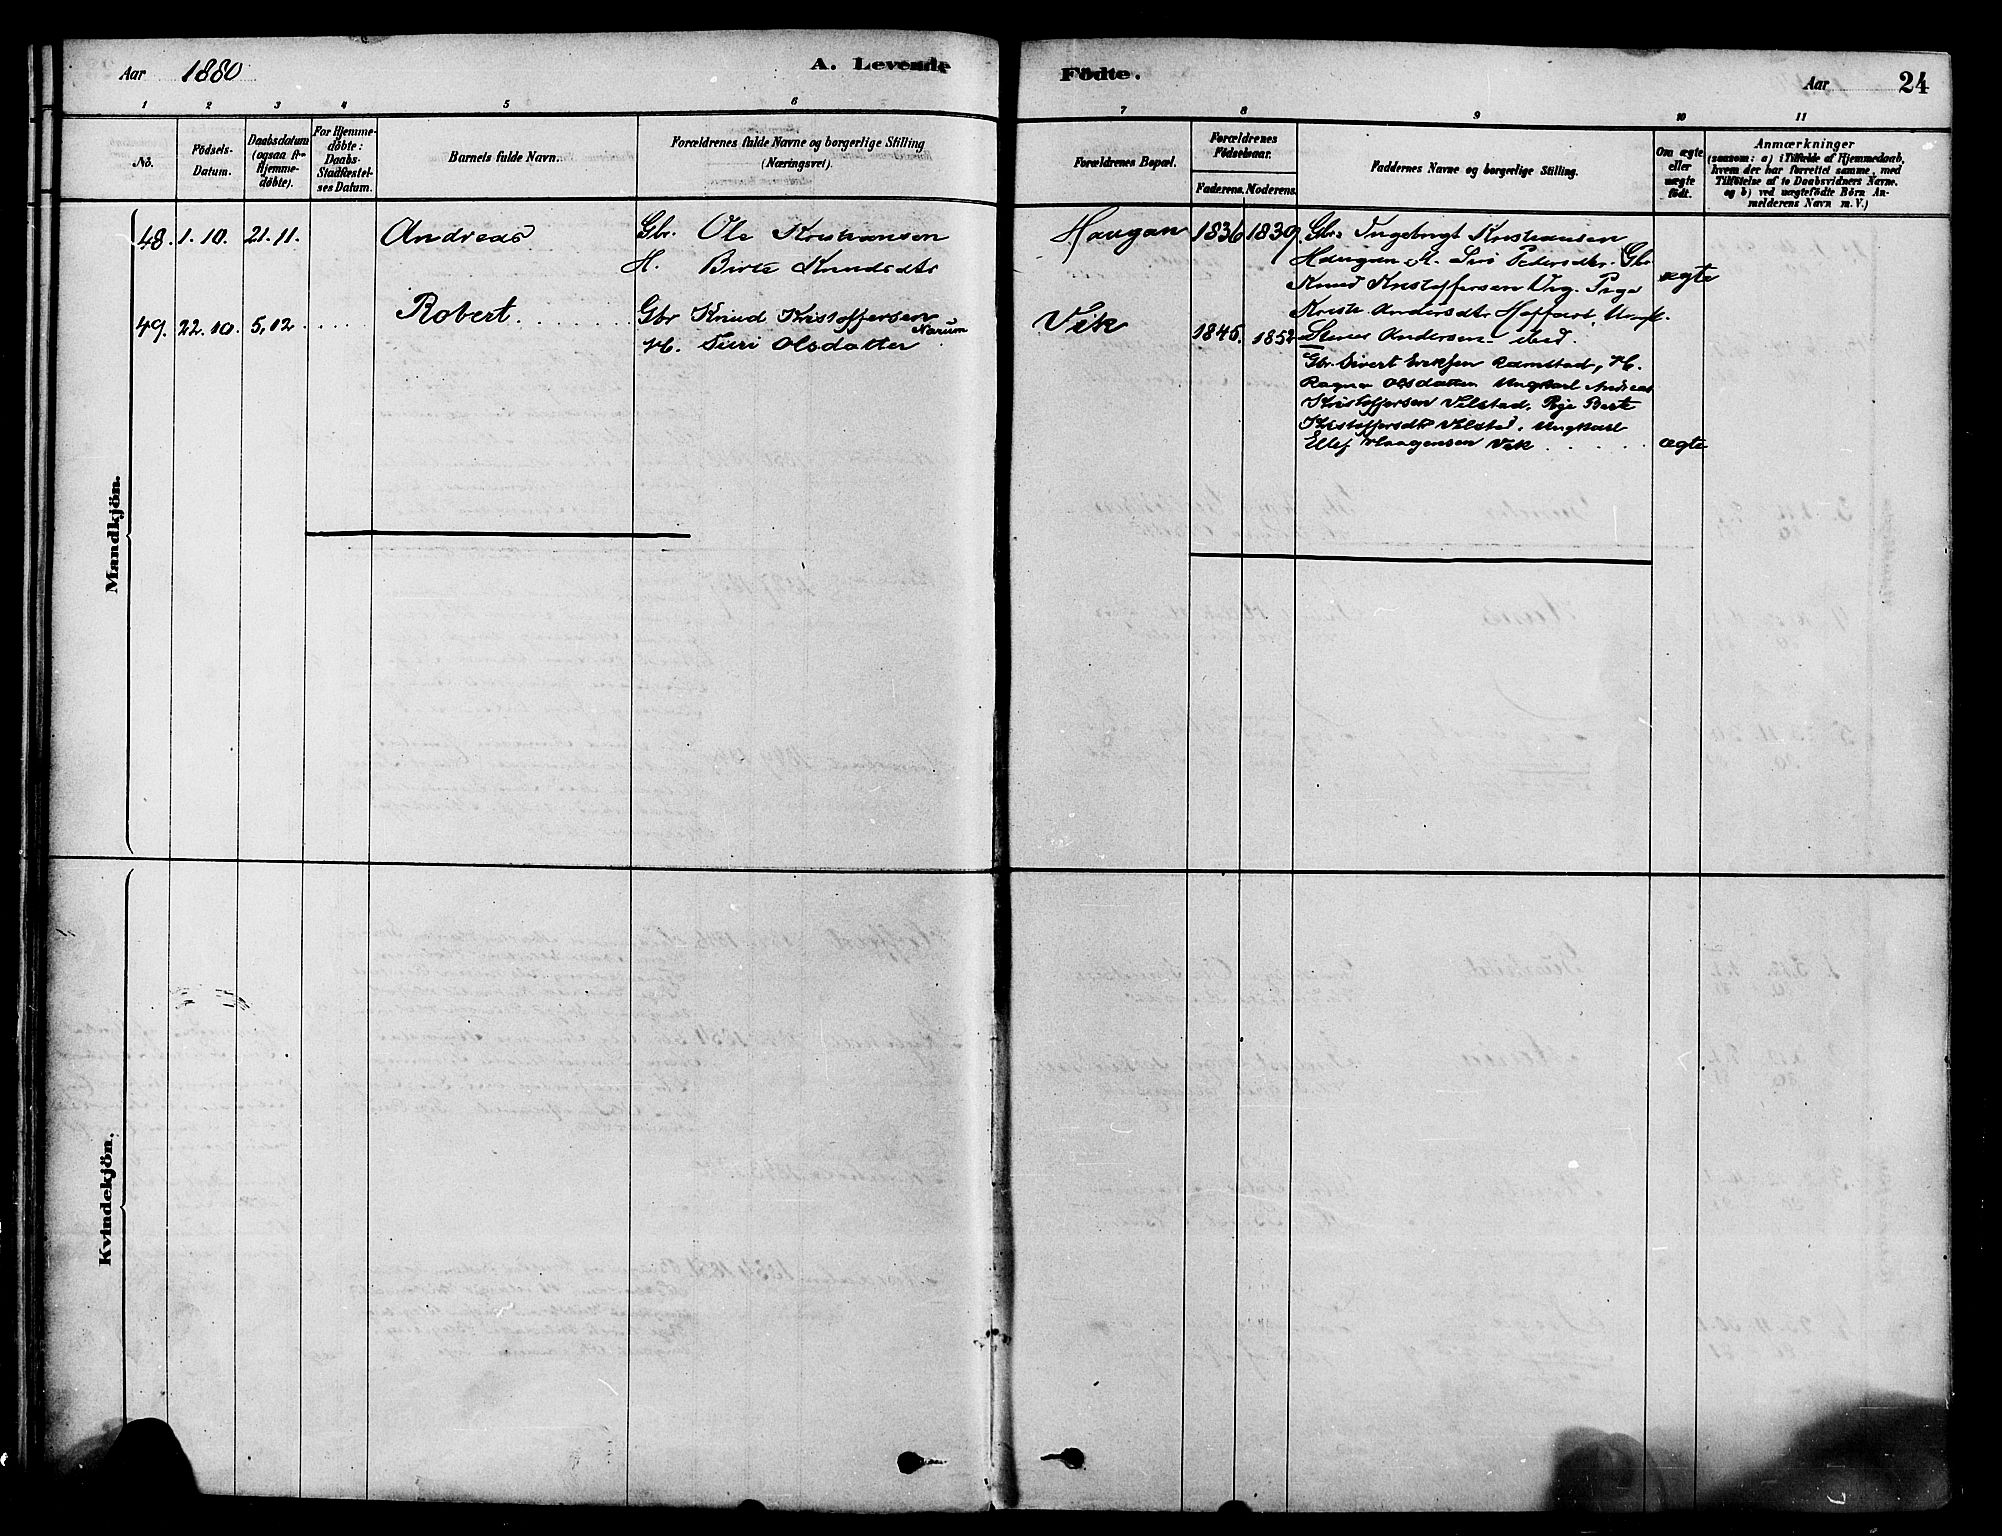 Aar 1880
A. Levende Födte.
Aar 24
1 2 3 4 5 6 7 8 9 10 11
No.
Födsels-Datum.
Daabsdatum (ogsaa f. Hjemme-döbte).
For Hjemme-döbte: Daabs-Stadfæstel-ses Datum.
Barnets fulde Navn.
Forældrenes fulde Navne og borgerlige Stilling
(Næringsvei).
Forældrenes Bopæl.
Forældrenes Födselsaar.
Faderens. Moderens.
Faddernes Navne og borgerlige Stilling.
Om ægte eller uægte födt.
Anmærkninger
(saasom: a) i Tilfælde af Hjemmedaab,
hvem der har forrettet samme, med
Tilföielse af to Daabsvidners Navne,
og b) ved uægtefödte Börn An-
melderens Navn m. V.)
Mandkjön.
48. 1.10. 21.11. Andreas Gbr. Ole Kristiansen Haugan 1836 1839 Gbr. Ingebrigt Kristiansen
H. Birte Knudsdtr
Haugan, H. Siri Pedersdtr. Gbr
Knud Kristoffersen Vig. Pige ægte
Kriste Andersdtr Hoffart, Ungk.
49. 22.10. 5.12 Robert. Gbr Knud Kristoffersen Vik 1845. 1852 Stener Andersen ibid.
H. Siri Olsdatter Narum
Gbr. Sivert Eriksen Ramstad, H.
Ragne Olsdatter Ungkarl Andreas
Kristoffersen Vilstad. Pige Berte
Kristoffersdtr Vilstad. Ungkarl
Ellef Haagensen Vik ægte
Kvindekjön.